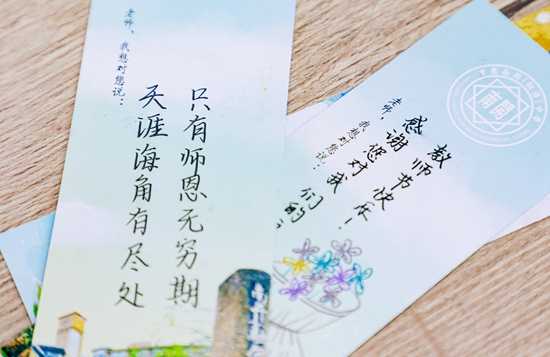 老师，我想对您说：
天涯海角有尽处
只有师恩无穷期
老师，我想对您说：
教师节快乐！
感谢您对我们的
南開